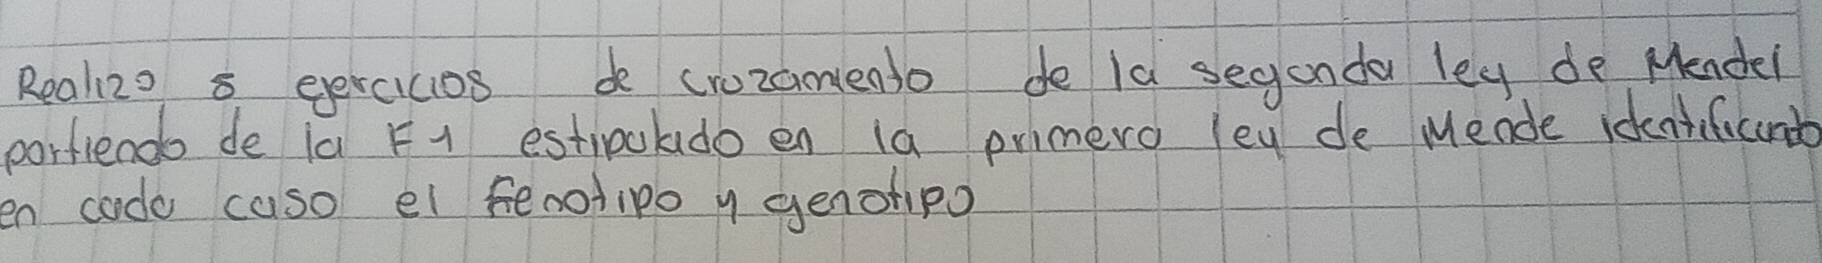 Realizo 5 ejercicios de cruzamiento de la segunda ley de Mendel
partiendo de la F1 estipulado en la primera ley de Mende identificando
en cada caso el fenotipo y genotipo